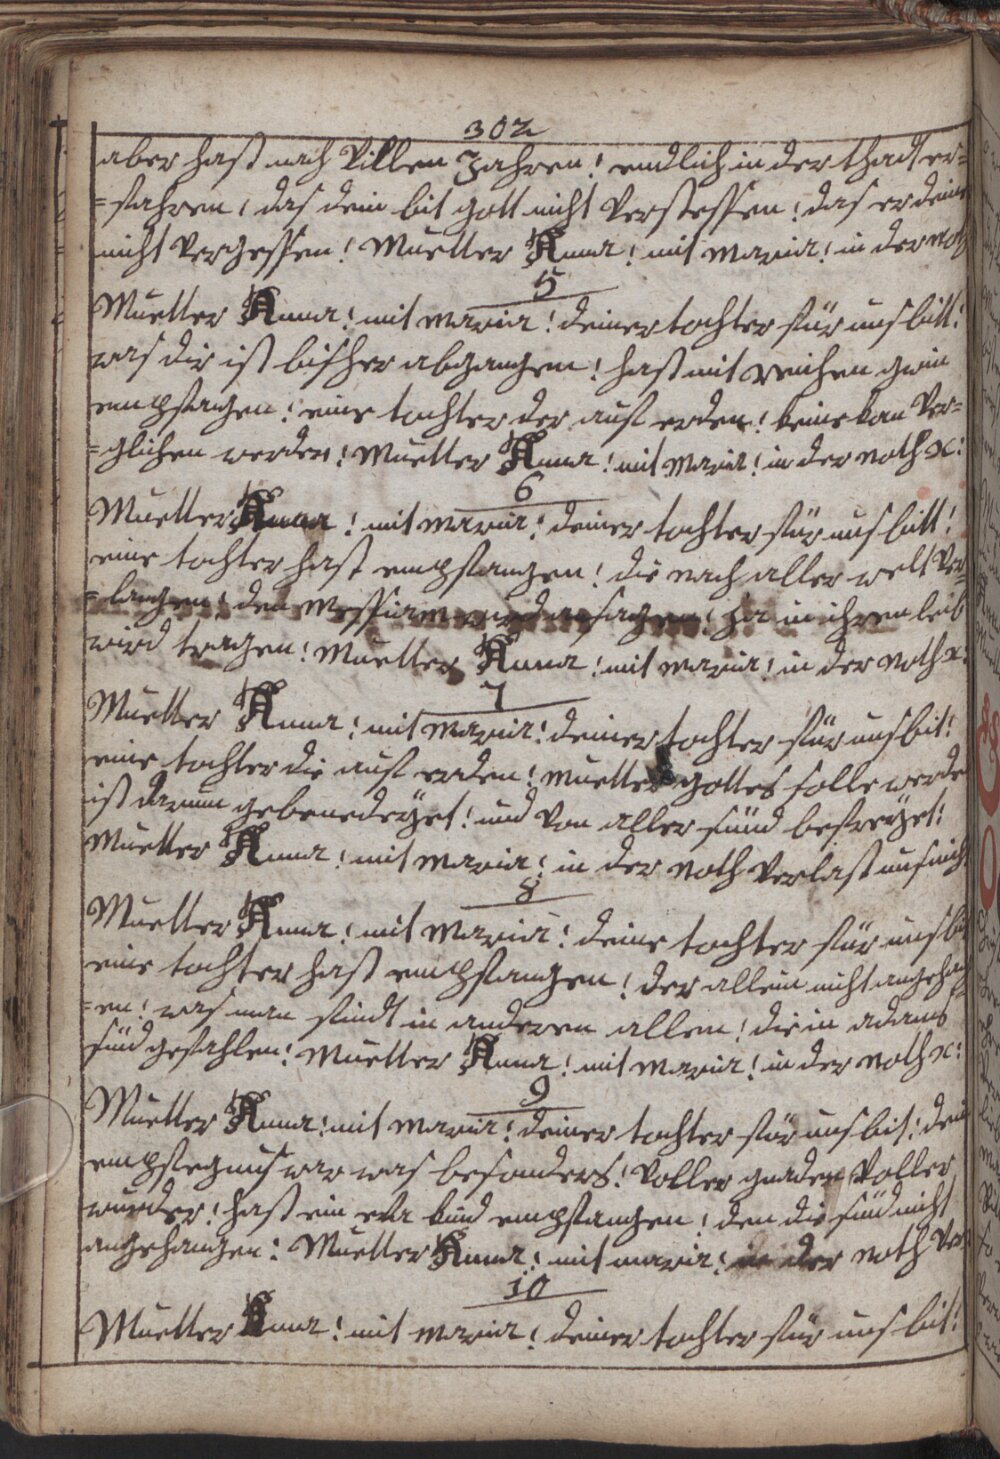 302
aber hast nach Villen Jahren! endlich in der thadt er=
=fahren! das dein bit gott nicht Vergessen! das er deine
nicht Vergessen! Muetter Anna! mit Maria! in der noth
5
Muetter Anna! mit maria! deiner tochter für uns bitt!
was dir ist bisher abgangen! hast mit reichen gwin
empfangen! eine tochter der auf erden! keine kan Ver=
=glichen werden! Muetter Anna! mit Maria! in der noth x:
6
Muetter Anna! mit maria! deiner tochter für uns bitt!
eine tochter hast empfangen! die nach aller welt Ver=
=langen! den Messiam wird ansagen! ja in ihren leib
wird tragen! Muetter Anna! mit maria! in der noth x:
7
Muetter Anna! mit maria! deiner tochter für uns bit!
eine tochter die auf erden! muetter gottes solle werde
ist darum gebenedeyet! und Von aller sünd befreyet!
Muetter Anna! mit maria! in der noth Verlast uns nicht
8
Muetter Anna! mit Maria! deine tochter für uns bit
eine tochter hast empfangen! der allein nicht angehang
=en! was man findt in anderen allen! die in adams
sünd gefahlen! Muetter Anna! mit maria! in der noth x:
9
Muetter Anna! mit maria! deiner tochter für uns bit! dein
empfegnus war was besonders! Voller gnaden Voller
wunder! hast ein kind empfangen! den die sünd nicht
angehangen: Muetter Anna! mit maria! in der noth Ver
10
Muetter Anna! mit maria! deiner tochter für uns bit!